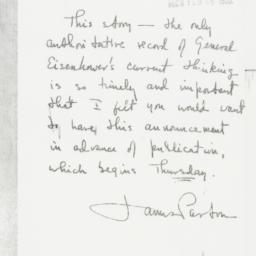 This story — the only
authoritative record of General
Eisenhower's current thinking
is so timely and important
that I felt you would want
to have this announcement
in advance of publication,
which begins Thursday.
James Parton